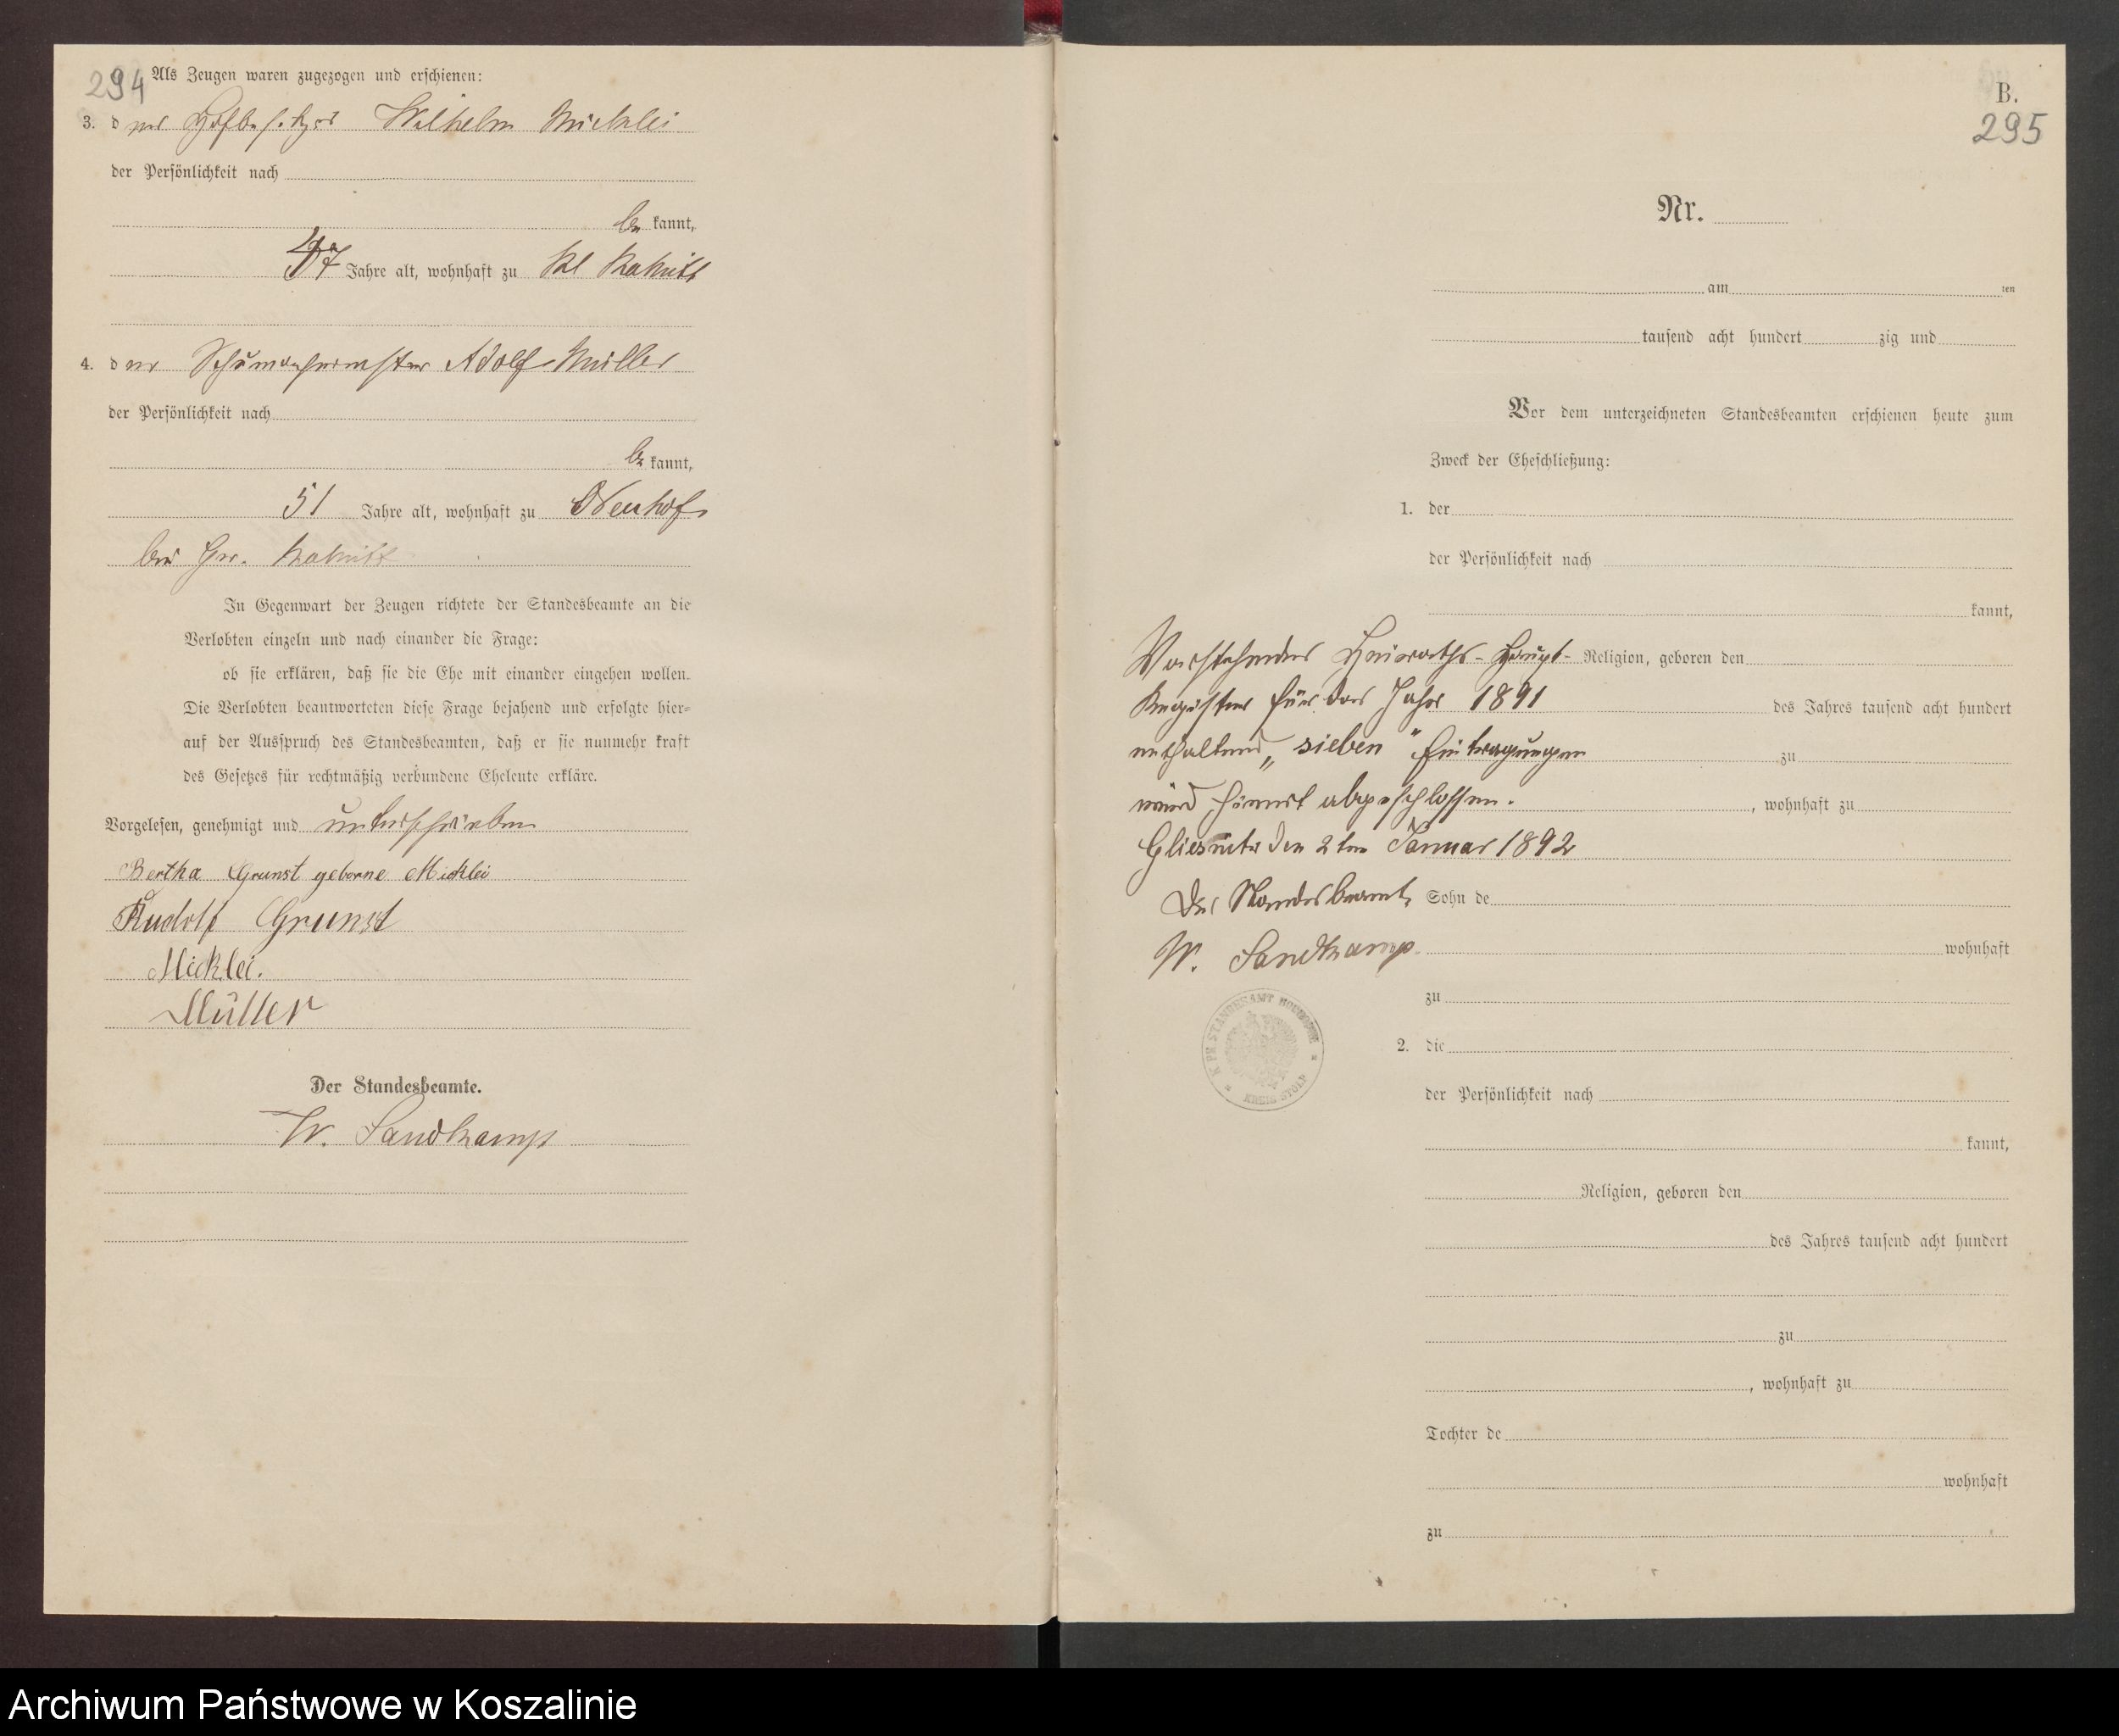 294
Als Zeugen waren zugezogen und erschienen:
3. der Hofbesitzer Wilhelm Micklei
der Persönlichkeit nach
be kannt,
47 Jahre alt, wohnhaft zu Kl Rakitt
4. der Schumachermeister Adolf Müller
der Persönlichkeit nach
be kannt,
51 Jahre alt, wohnhaft zu Neuhof
bei Gr. Rakitt
In Gegenwart der Zeugen richtete der Standesbeamte an die
Verlobten einzeln und nach einander die Frage:
ob sie erklären, daß sie die Ehe mit einander eingehen wollen.
Die Verlobten beantworteten diese Frage bejahend und erfolgte hier=
auf der Ausspruch des Standesbeamten, daß er sie nunmehr kraft
des Gesetzes für rechtmäßig verbundene Eheleute erkläre.
Vorgelesen, genehmigt und unterschrieben
Bertha Grunst geborne Micklei
Rudolf Grunst
Micklei.
Müller
Der Standesbeamte.
W. Sandkamp
B.
295
Nr.
am ten
tausend acht hundert zig und
Vor dem unterzeichneten Standesbeamten erschienen heute zum
Zweck der Eheschließung:
1. der
der Persönlichkeit nach
kannt,
Vorstehendes Heiraths-Haupt- Religion, geboren den
Register für das Jahr 1891 des Jahres tausend acht hundert
enthaltend „sieben" Eintragungen zu
wird hiermit abgeschlossen. , wohnhaft zu
den 2ten Januar 1892
Der Standesbeamte Sohn de
W. Sandkamp. wohnhaft
zu
K PR STANDESAMT
KREIS STOLP
2. die
der Persönlichkeit nach
kannt,
Religion, geboren den
des Jahres tausend acht hundert
zu
, wohnhaft zu
Tochter de
wohnhaft
zu
Archiwum Państwowe w Koszalinie